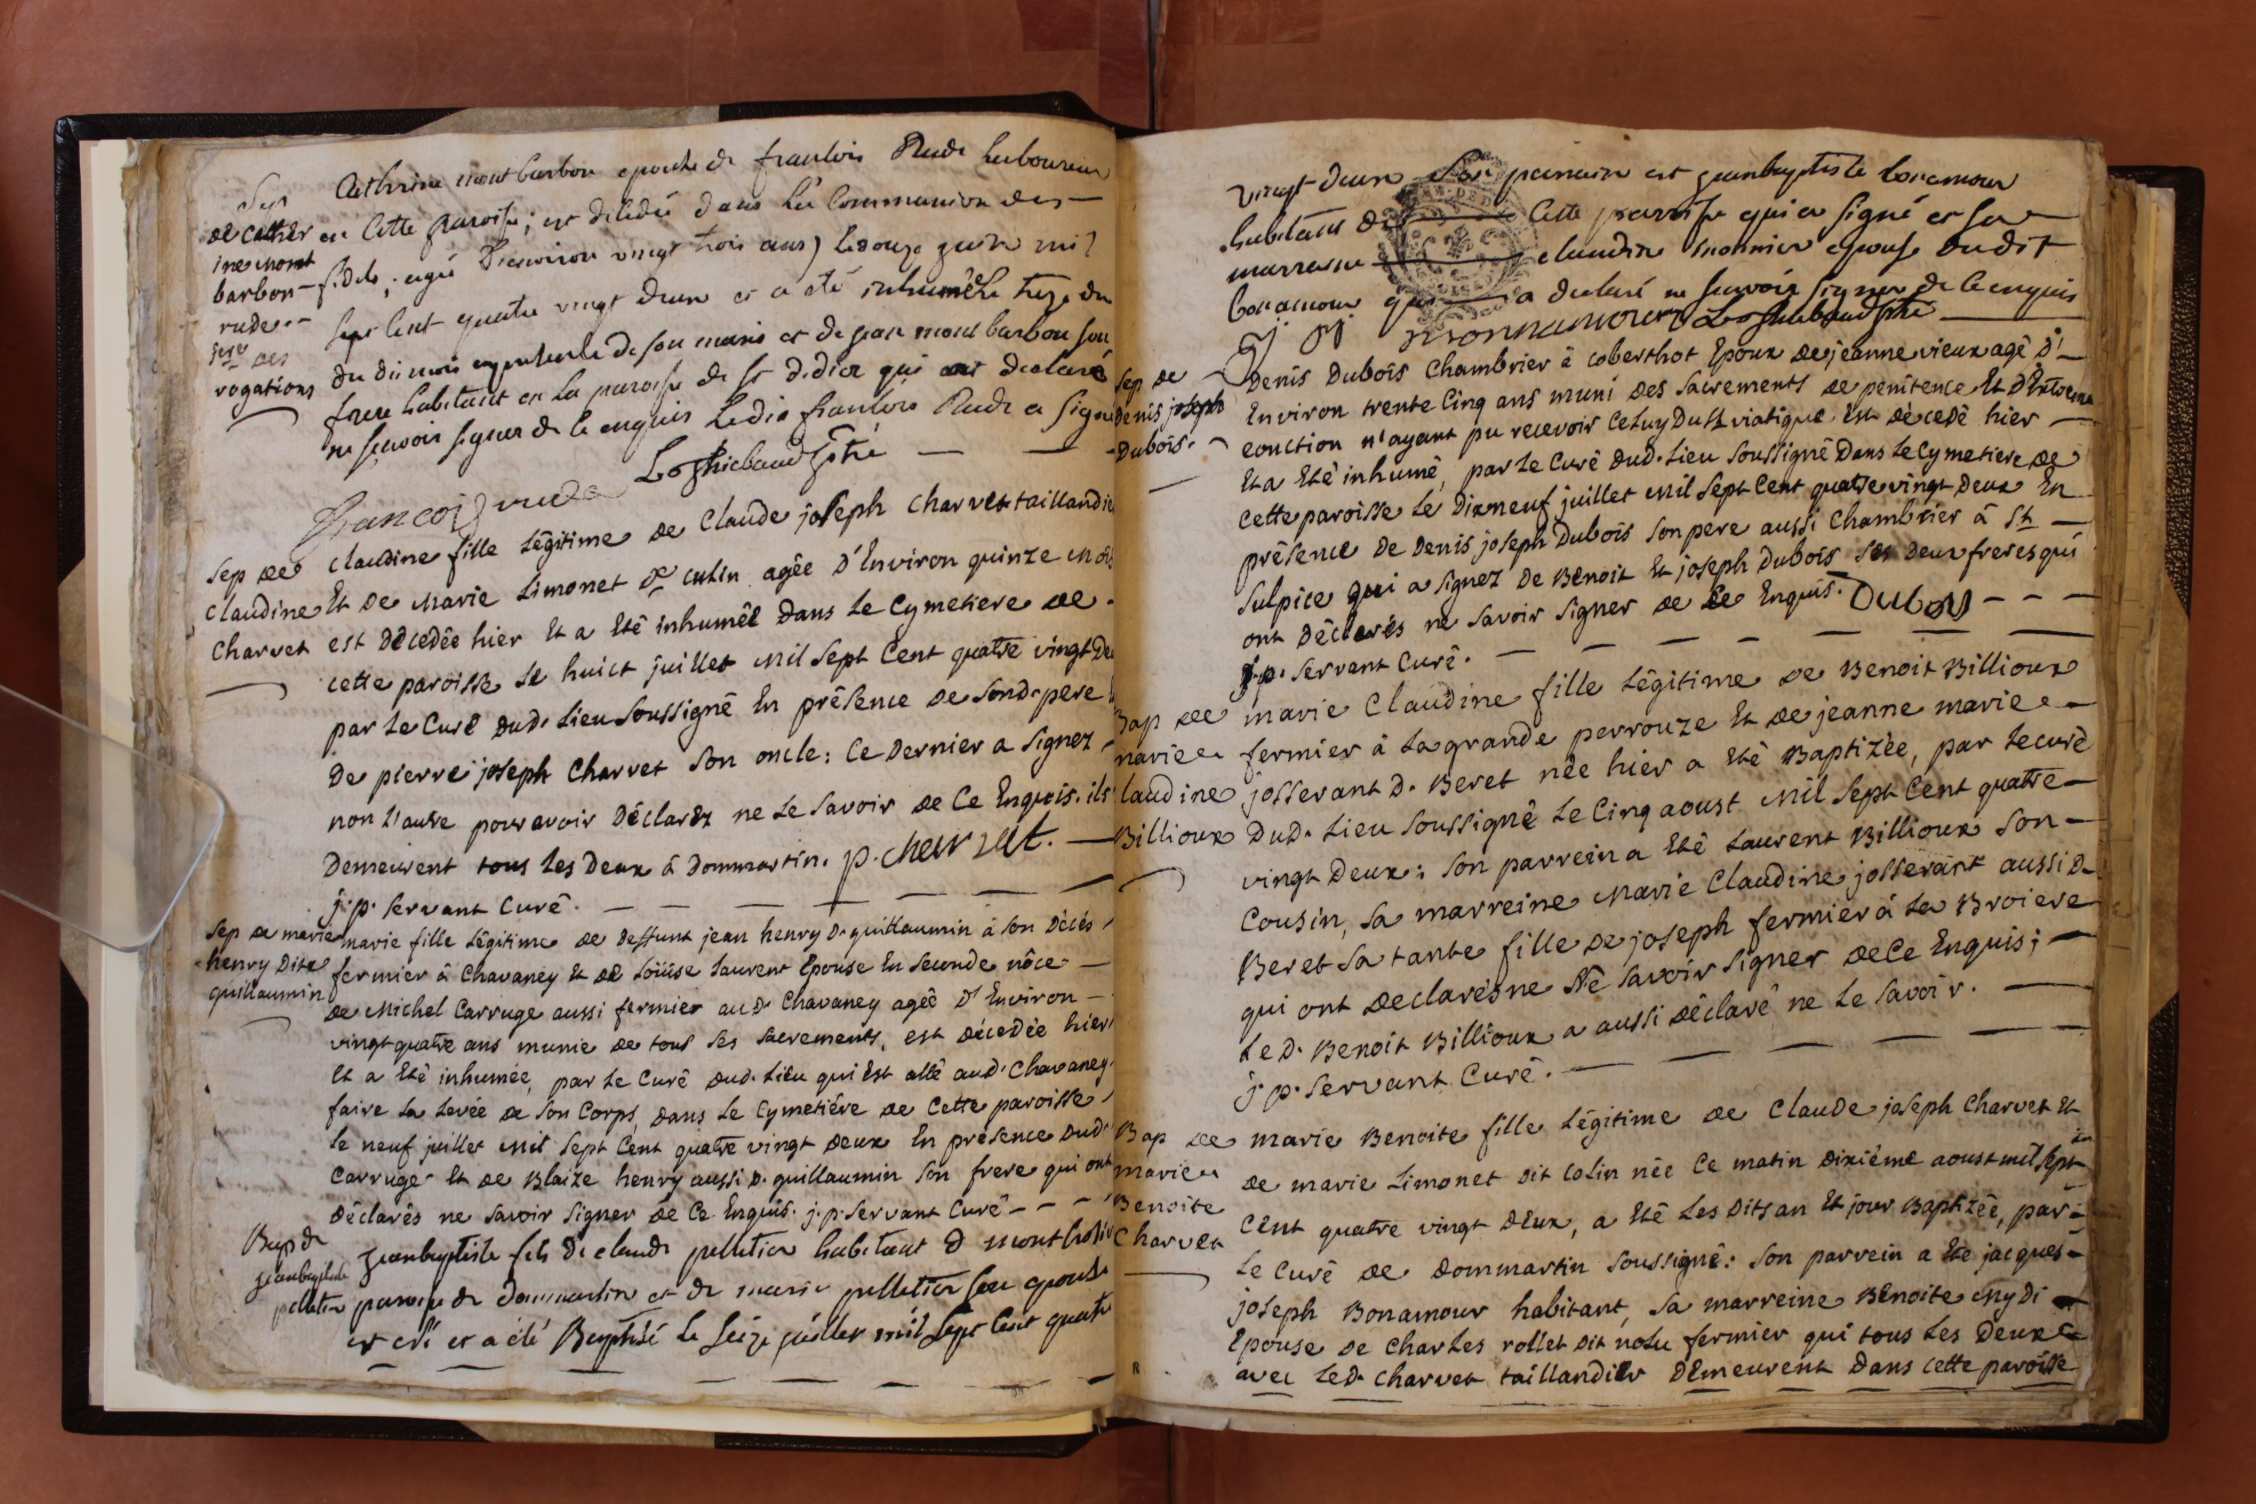 Sep
de cather
ine mont
barbon
rude
des
rogations
Catherine montbarbon epouse de francois Rude laboureur
en cette paroisse, est decedée dans la Communion des
fideles, agée d'environ vingt trois ans, le douze juin mil
sept cent quatre vingt deux et a été inhumée le treize du
du dit mois en presence de son mari et de jean montbarbon son
frere habitant en la paroisse de st didier qui ont declaré
ne scavoir signer de ce enquis Ledit francois Rude a signé
francois rude
Sep de
Claudine
Charvet
Claudine fille légitime de Claude joseph Charvet taillandier
Et De Marie Limonet De Culin agée d'Environ quinze mois
est Décedée hier Et a Eté inhumée Dans Le Cymetiere de
cette paroisse Le huict juillet Mil Sept Cent quatre vingt Deux
par Le Curé Dud. Lieu Soussigné En présence De Sond. pere
De pierre joseph Charvet Son oncle: Ce Dernier a Signez
non L'autre pour avoir Déclarez ne Le Savoir de Ce Enquis. ils
Demeurent tous Les Deux à Dommartin. p. charvet.
j. p. Servant Curé.
Sep de marie
henry Dite
guillaumin
marie fille Légitime de Deffunt jean henry D. guillaumin à son Décés
fermier à Chavaney Et de Loüise Laurent Epouse En Seconde nôce
de Michel Carruge aussi fermier aud. Chavaney agée D'Environ
vingt quatre ans munie de tous Ses Sacrements, est décedée hier
Et a Eté inhumée, par Le Curé Dud. Lieu qui Est allé aud. Chavaney
faire La Levée de Son Corps, Dans Le Cymetiére de Cette paroisse
Le neuf juillet Mil Sept Cent quatre vingt Deux En présence Dud.
Carruge Et de Blaize henry aussi D. guillaumin Son frere qui ont
Déclarés ne Savoir Signer de Ce Enquis. j. p. Servant Curé
Bap de
jeanbaptiste
pelletier
jeanbaptiste fils de claude pelletier habitant à
paroisse de dommartin et de marie pelletier son epouse
est né et a été Baptisé le seize juillet mil sept cent quatre
vingt deux Son parrain est jeanbaptiste bonamour
habitant de cette paroisse qui a signé et sa
marraine claudine monnier epouse dudit
bonamour qui a declaré ne scavoir signer de ce enquis
Sep de
Denis joseph
Dubois.
Denis Dubois Chambrier à Coberthot Epoux de jeanne vieux agé d'
Environ trente Cinq ans muni Des Sacrements de penitence Et d'Extreme
onction n'ayant pu recevoir Celuy Du St viatique Est décedé hier
Et a Eté inhumé, par Le Curé Dud. Lieu Soussigné Dans Le Cymetiere de
Cette paroisse Le Dix neuf juillet Mil Sept Cent quatre vingt Deux En
présence De Denis joseph Dubois Son pere aussi Chambrier à St
Sulpice qui a signez De Benoit Et joseph Dubois Ses Deux freres qui
ont Déclarés ne Savoir Signer de Ce Enquis. Dubois
j. p. Servant Curé.
Bap de
marie
Claudine
Billioux
marie Claudine fille Légitime de Benoit Billioux
fermier à La grande perrouze Et de jeanne marie
josserant D. Beret née hier a Eté Baptizée, par Le curé
Dud. Lieu Soussigné Le Cinq aoust Mil Sept Cent quatre
vingt Deux: Son parrein a Eté Laurent Billioux Son
Cousin, Sa marreine Marie Claudine josserant aussi D.
Beret Sa tante fille de joseph fermier à La Broiere
qui ont declarés ne Né Savoir Signer de Ce Enquis;
Le D. Benoit Billioux a aussi déclaré ne Le Savoir.
j. p. Servant Curé.
Bap de
marie
Benoite
Charvet
marie Benoite fille Légitime de Claude joseph Charvet Et
de marie Limonet dit Colin née Ce matin dixiéme aoust mil Sept
Cent quatre vingt dEux, a Eté Les Dits an Et jour Baptizée, par
Le Curé de Dommartin Soussigné: Son parrein a Eté jacques
joseph Bonamour habitant, Sa marreine Benoite Mydi
Epouse de Charles rollet dit nolu fermier qui tous Les Deux
avec Led. Charvet taillandier DEmeurent Dans cette paroisse